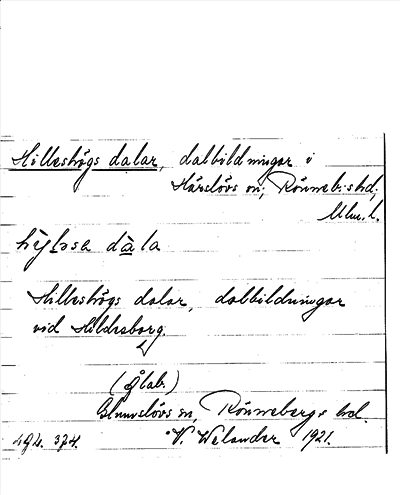 Hilleshögs dalar, dalbildningar i
Härslövs sn, Rönneb:s hd,
Mlm. l.
dàla
Hilleshögs dalar, dalbildningar
vid Hildesborg
(Ålab.)
Glumslövs sn, Rönnebergs hd.
494. 374.
N. Welander 1921.